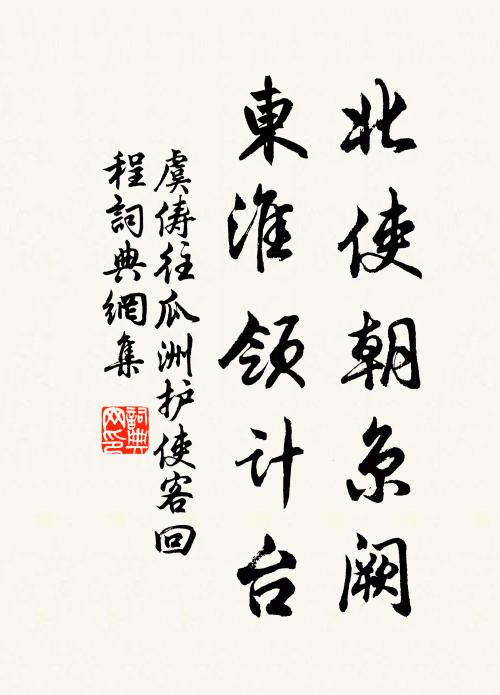 北使朝京阙
東淮領计台
虞俦往瓜洲护使客回
程詞典網集
詞典
网印